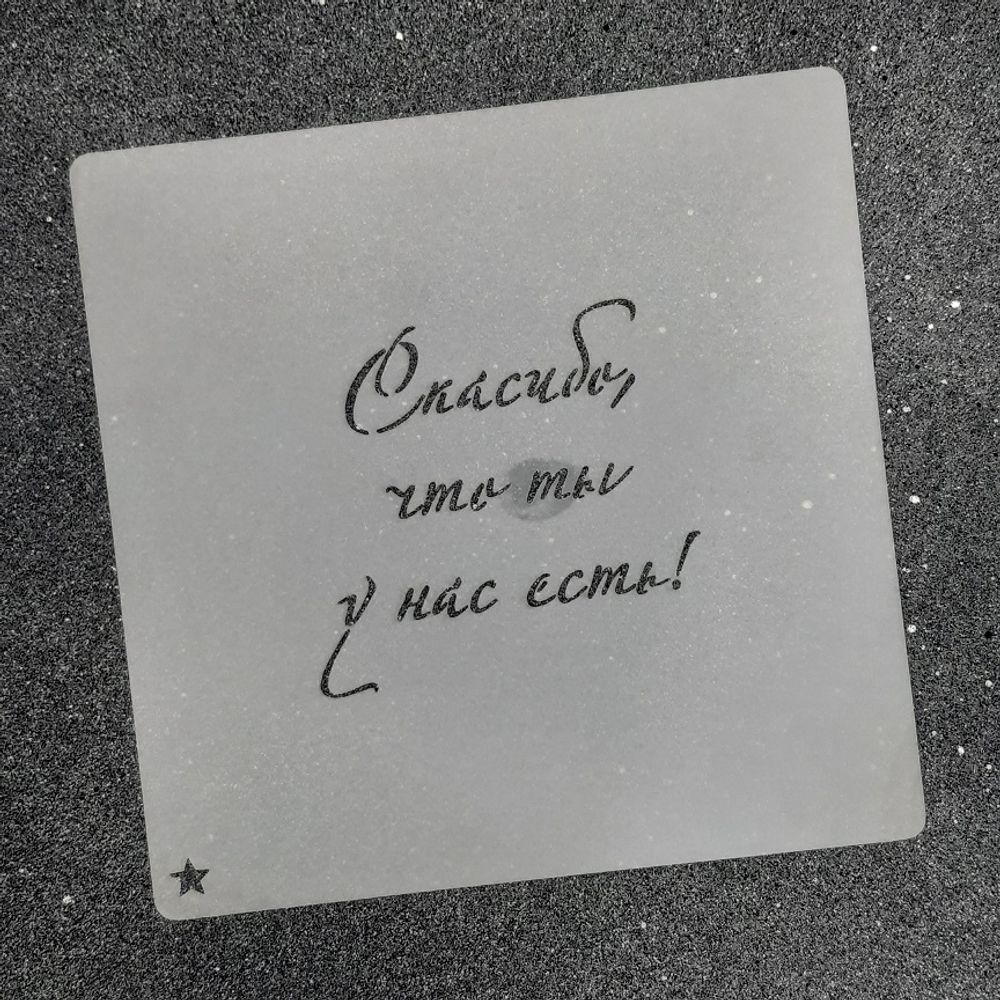 Спасибо,
что ты
у нас есть!